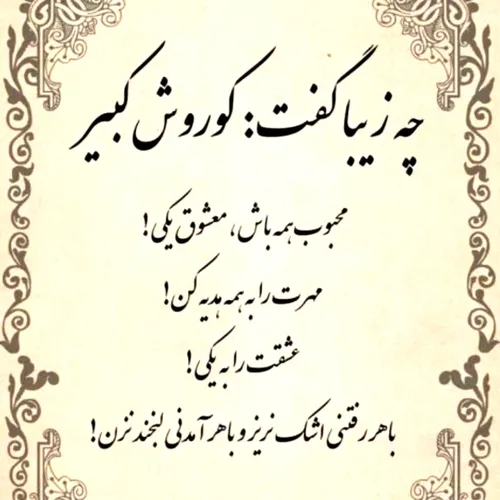 چه زیبا گفت: کوروش کبیر
محبوب همه باش، معشوق یکی!
مهرت را به همه هدیه کن!
عشقت را به یکی!
با هر رفتنی اشک نریز و با هر آمدنی لبخند نزن!